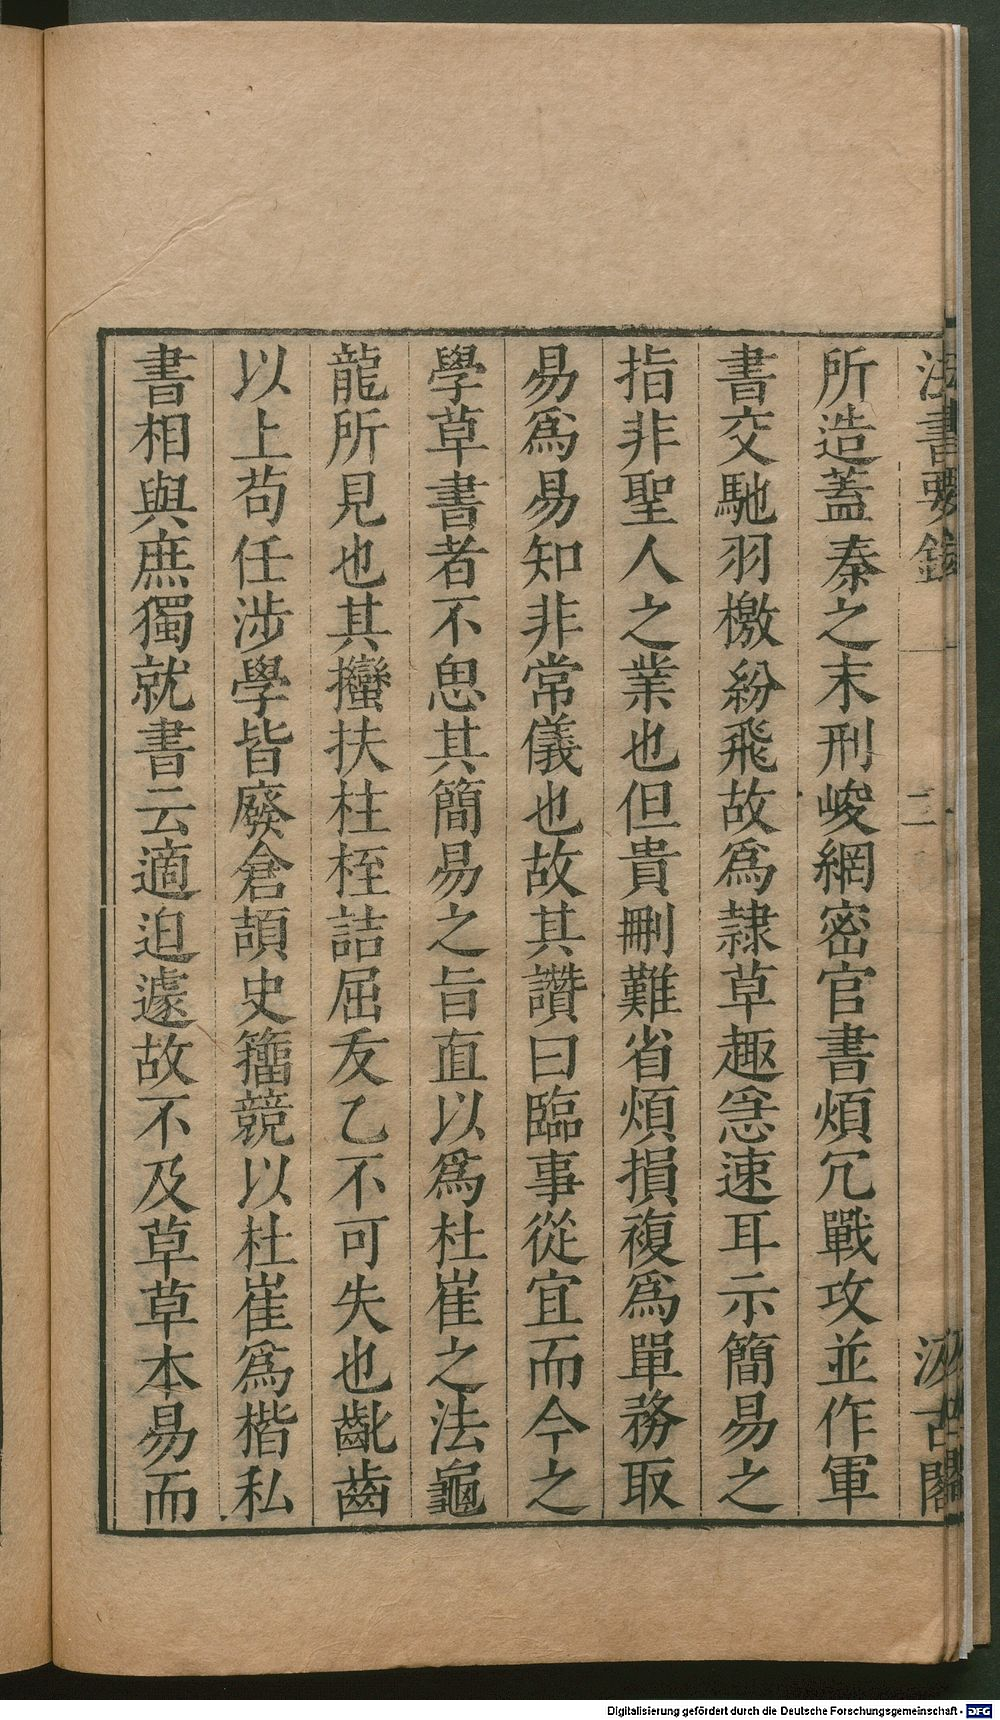 法書要錄
二
汲古閣
所造蓋秦之末刑峻網密官書煩冗戰攻並作軍
書交馳羽檄紛飛故爲隸草趣急速耳示簡易之
指非聖人之業也但貴刪難省煩損複爲單務取
易爲易知非常儀也故其讚曰臨事從宜而今之
學草書者不思其簡易之旨直以爲杜崔之法龜
龍所見也其𢺳扶柱桎詰屈叐乙不可失也齔齒
以上苟任涉學皆廢倉頡史籀競以杜崔爲楷私
書相與庶獨就書云適迫遽故不及草草本易而
Digitalisierung gefördert durch die Deutsche Forschungsgemeinschaft - DFG